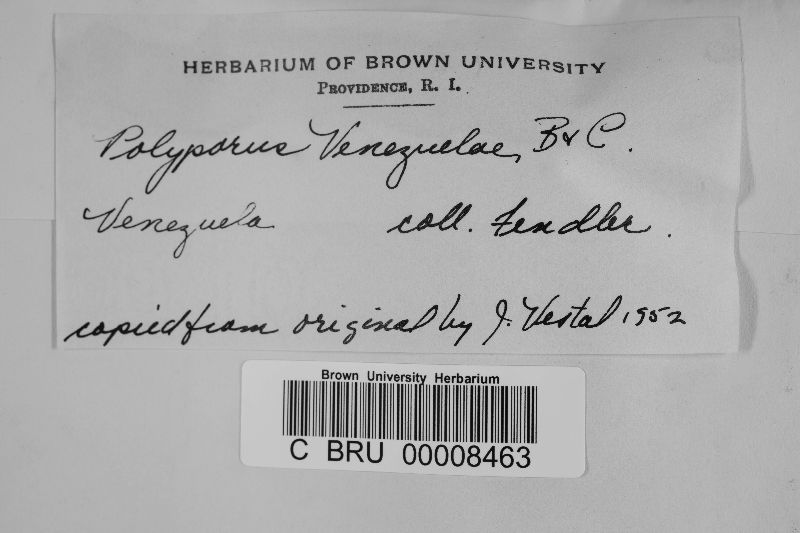 HERBARIUM OF BROWN UNIVERSITY
PROVIDENCE, R. I.
Polyporus Venezuelae, B & C.
Venezuela coll. Fendler.
copied from original by J. Vestal 1952
Brown University Herbarium
C BRU 00008463